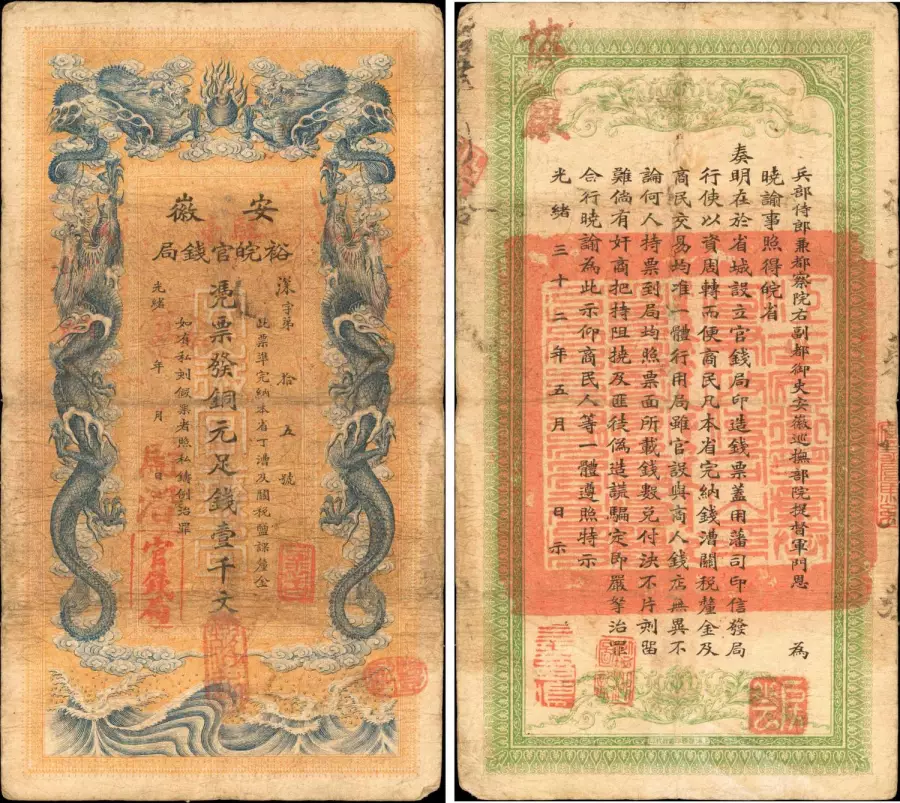 安徽
裕皖官錢局
深字第拾五號
此票準完納本省丁漕及關稅鹽課釐金
憑票發銅元足錢壹千文
如有私刻假票者照私鑄例治罪
光緒 年 月 日
官錢局
兵部侍郎兼都察院右副都御史安徽巡撫部院提督軍門恩 為
曉諭事照得皖省
奏明在於省城設立官錢局印造錢票蓋用藩司印信發局
行使以資周轉而便商民凡本省完納錢漕關稅釐金及
商民交易均准一體行用局雖官設與商人錢店無異不
論何人持票到局均照票面所載錢數兌付決不片刻留
難倘有奸商把持阻撓及匪徒偽造謊騙定即嚴拏治罪
合行曉諭為此示仰商民人等一體遵照特示
光緒三十二年五月 日示